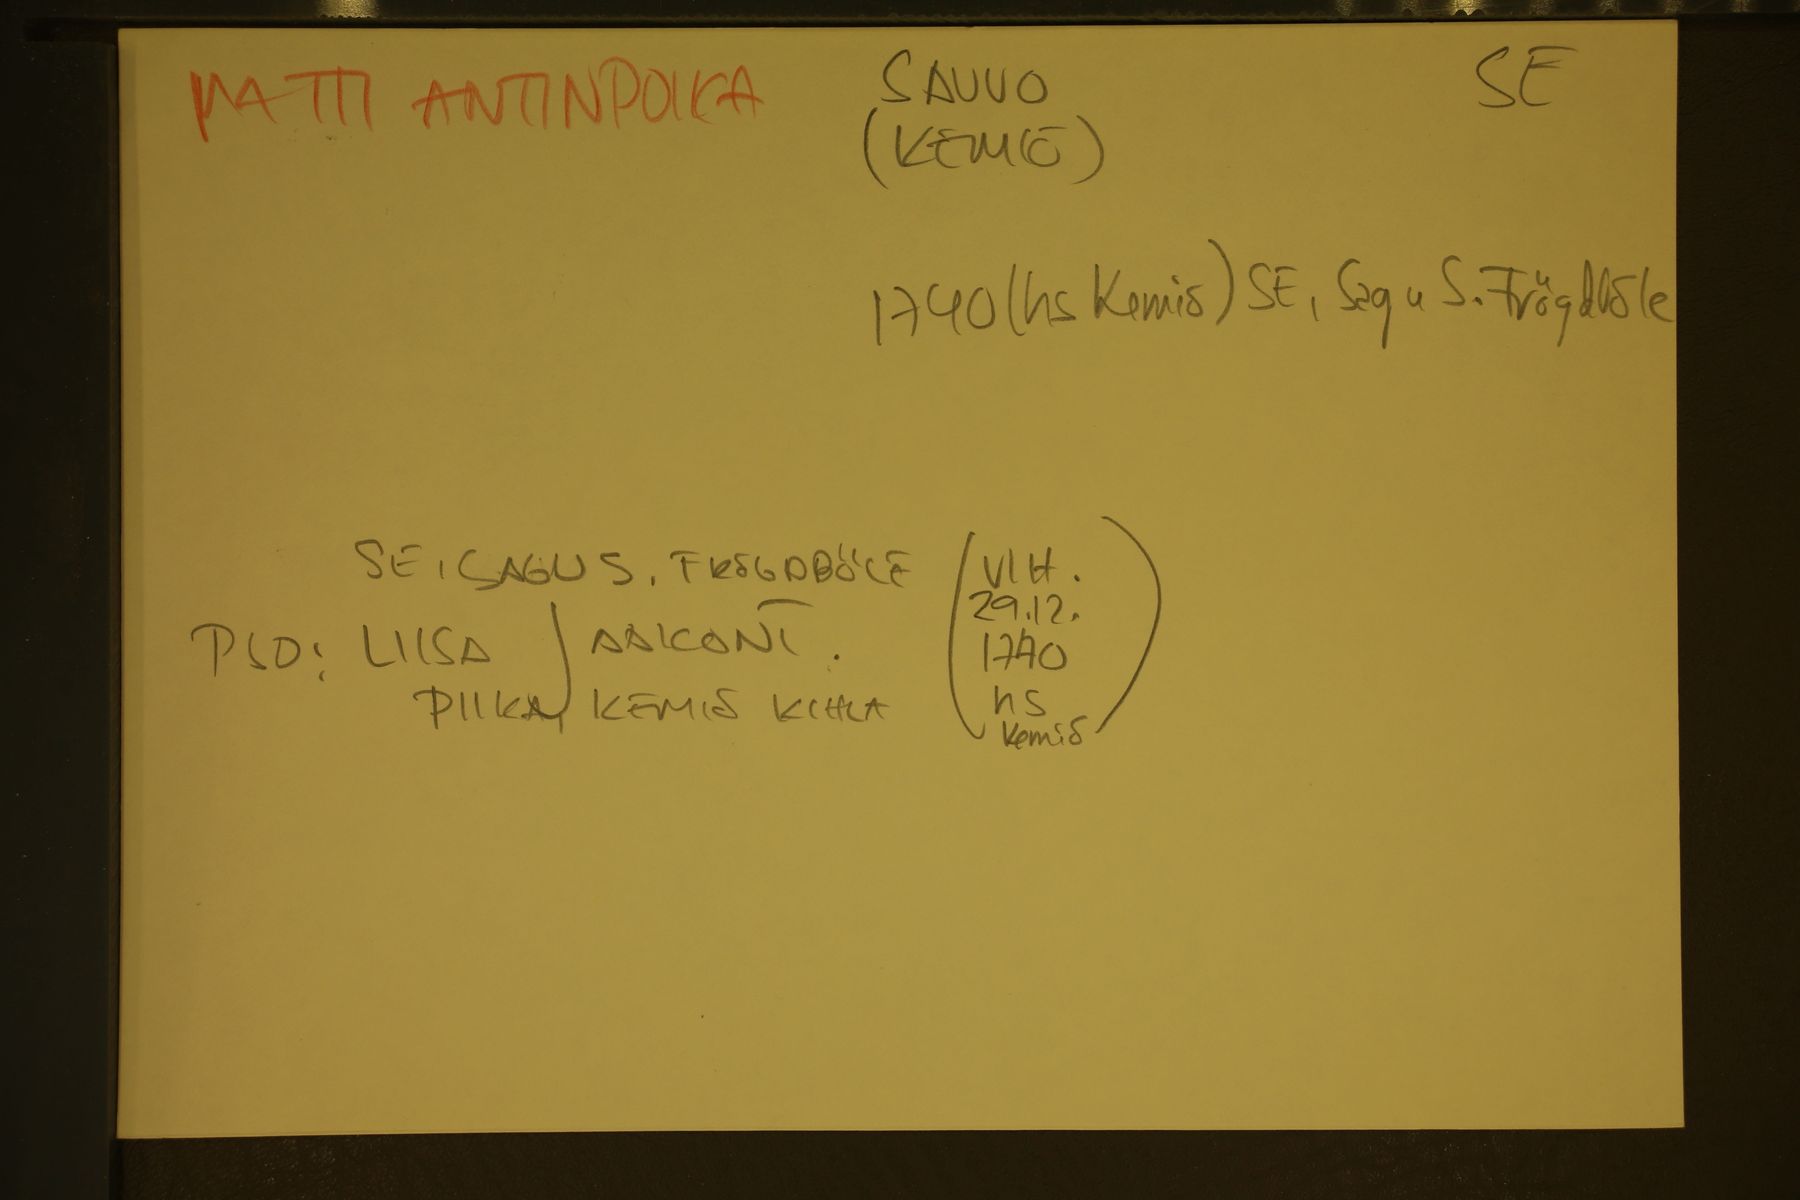 MATTI ANTINPOIKA SAUVO SE
(KEMIÖ)
1740 (hs Kemiö) SE, Sagu S. Frögdböle
SE, SAGU S. FRÖGDBÖLE (VIH.
29.12.
PSO: LIISA
1740
PIIKA, KEMIÖ KIHLA hs
Kemiö)